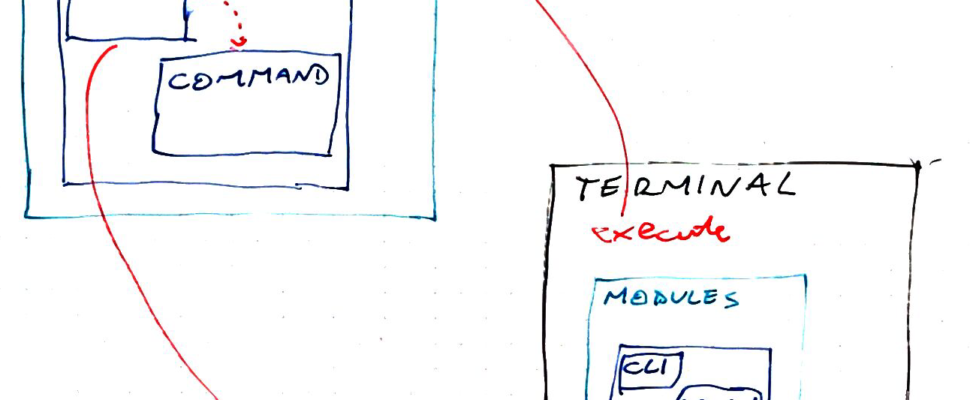 COMMAND
TERMINAL
execute
MODULES
CLI